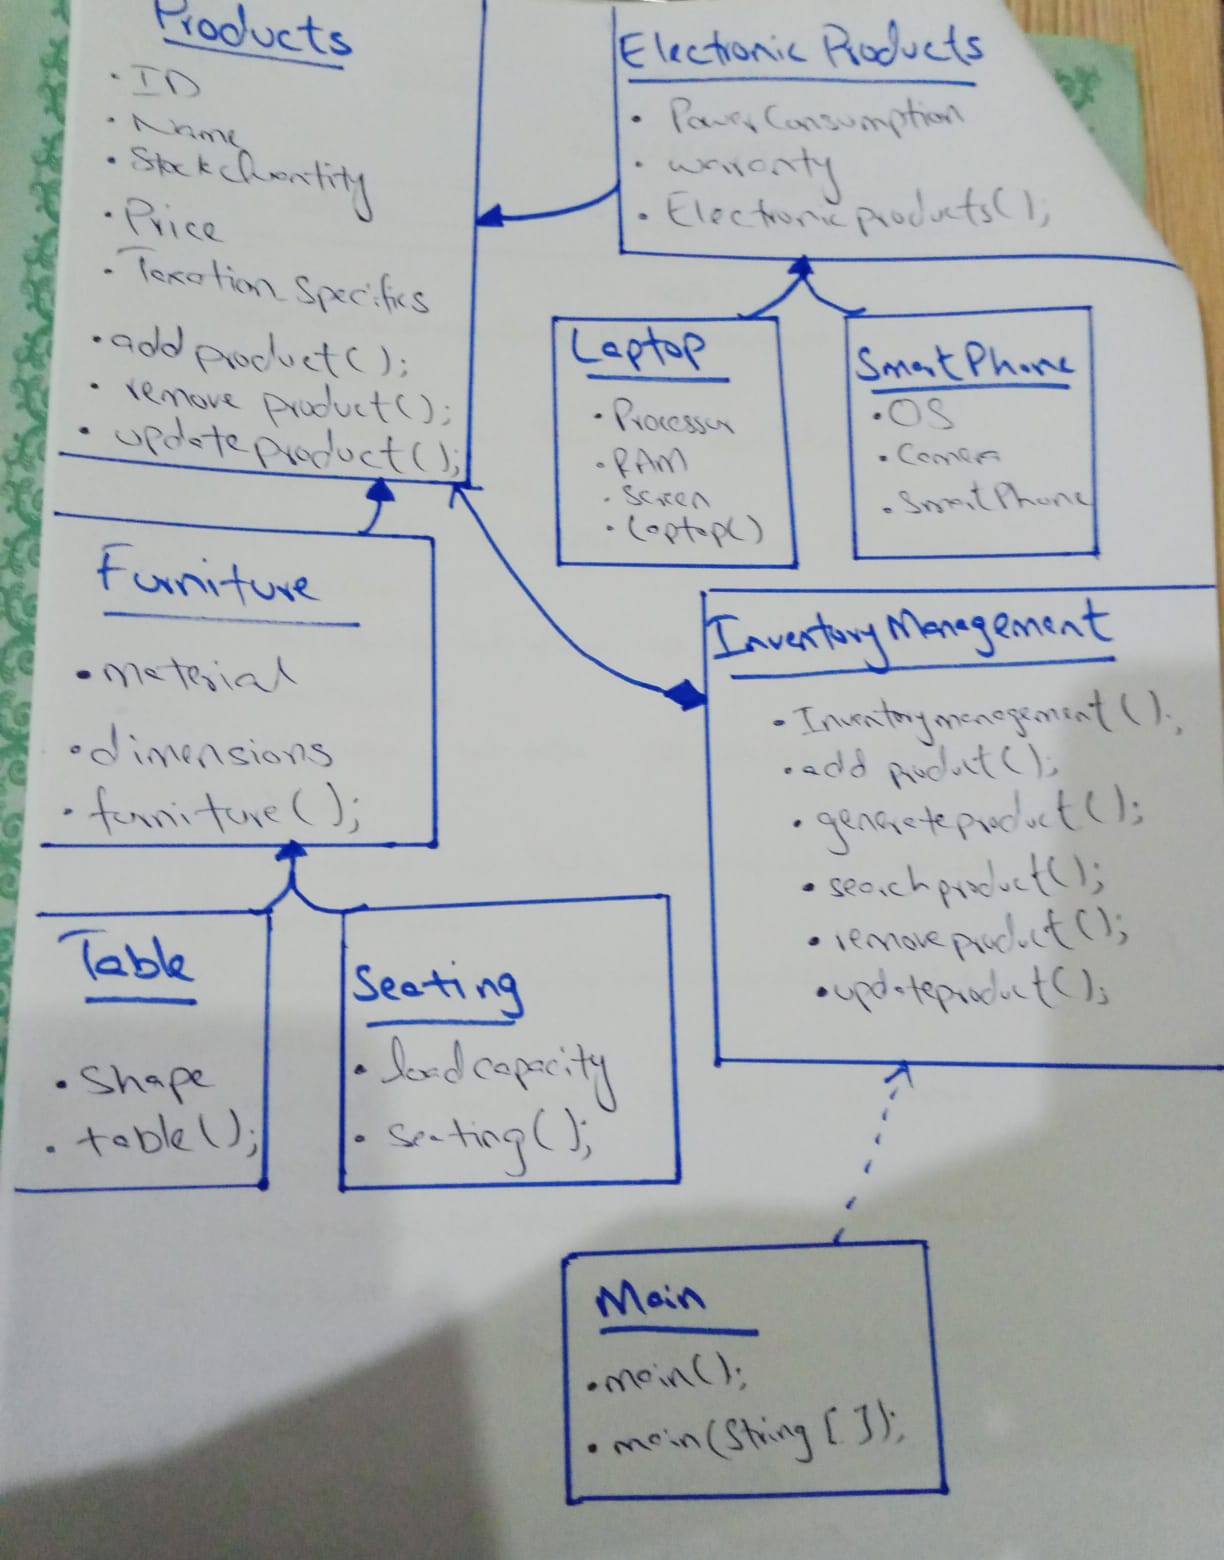 Products
• ID
• Name
• Stock Quantity
• Price
• Taxation Specifics
• add product();
• remove product();
• update product();
Electronic Products
• Power Consumption
• warranty
• Electronic products();
Laptop
• Processor
• RAM
• Screen
• Laptop()
SmartPhone
• OS
• Camera
• SmartPhone
Furniture
• material
• dimensions
• furniture();
Inventory Management
• Inventory management();
• add product();
• generate product();
• search product();
• remove product();
• update product();
Table
• Shape
• table();
Seating
• load capacity
• seating();
Main
• main();
• main(String []);